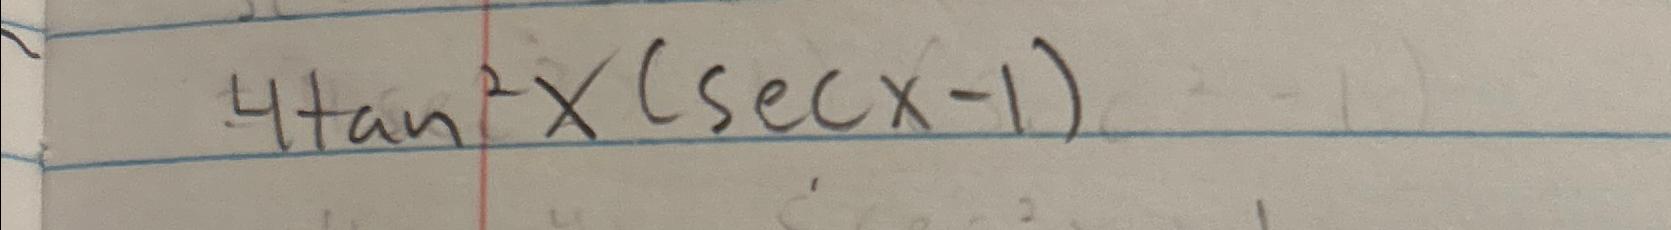 4tan²x(secx-1)